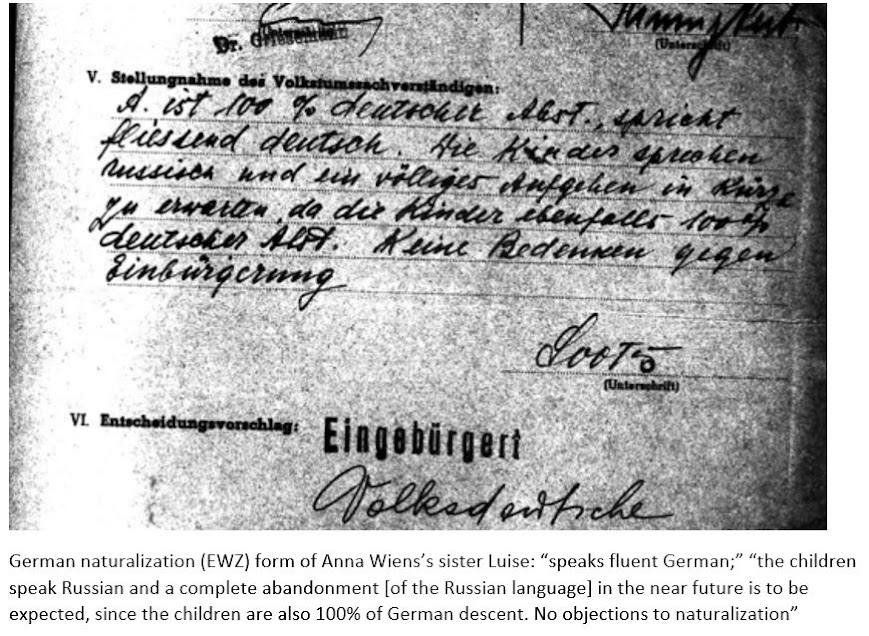 Dr.
(Unterschrift)
V. Stellungnahme des Volkstumssachverständigen:
A. ist 100 % deutscher Abst., spricht
fliessend deutsch. Die Kinder sprechen
russisch und ein völliges Aufgehen in Kürze
zu erwarten, da die Kinder ebenfalls 100 %
deutscher Abst. Keine Bedenken gegen
Einbürgerung
(Unterschrift)
VI. Entscheidungsvorschlag:
Eingebürgert
Volksdeutsche
German naturalization (EWZ) form of Anna Wiens’s sister Luise: “speaks fluent German;” “the children
speak Russian and a complete abandonment [of the Russian language] in the near future is to be
expected, since the children are also 100% of German descent. No objections to naturalization”